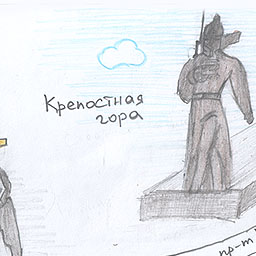 Крепостная
гора
пр-т